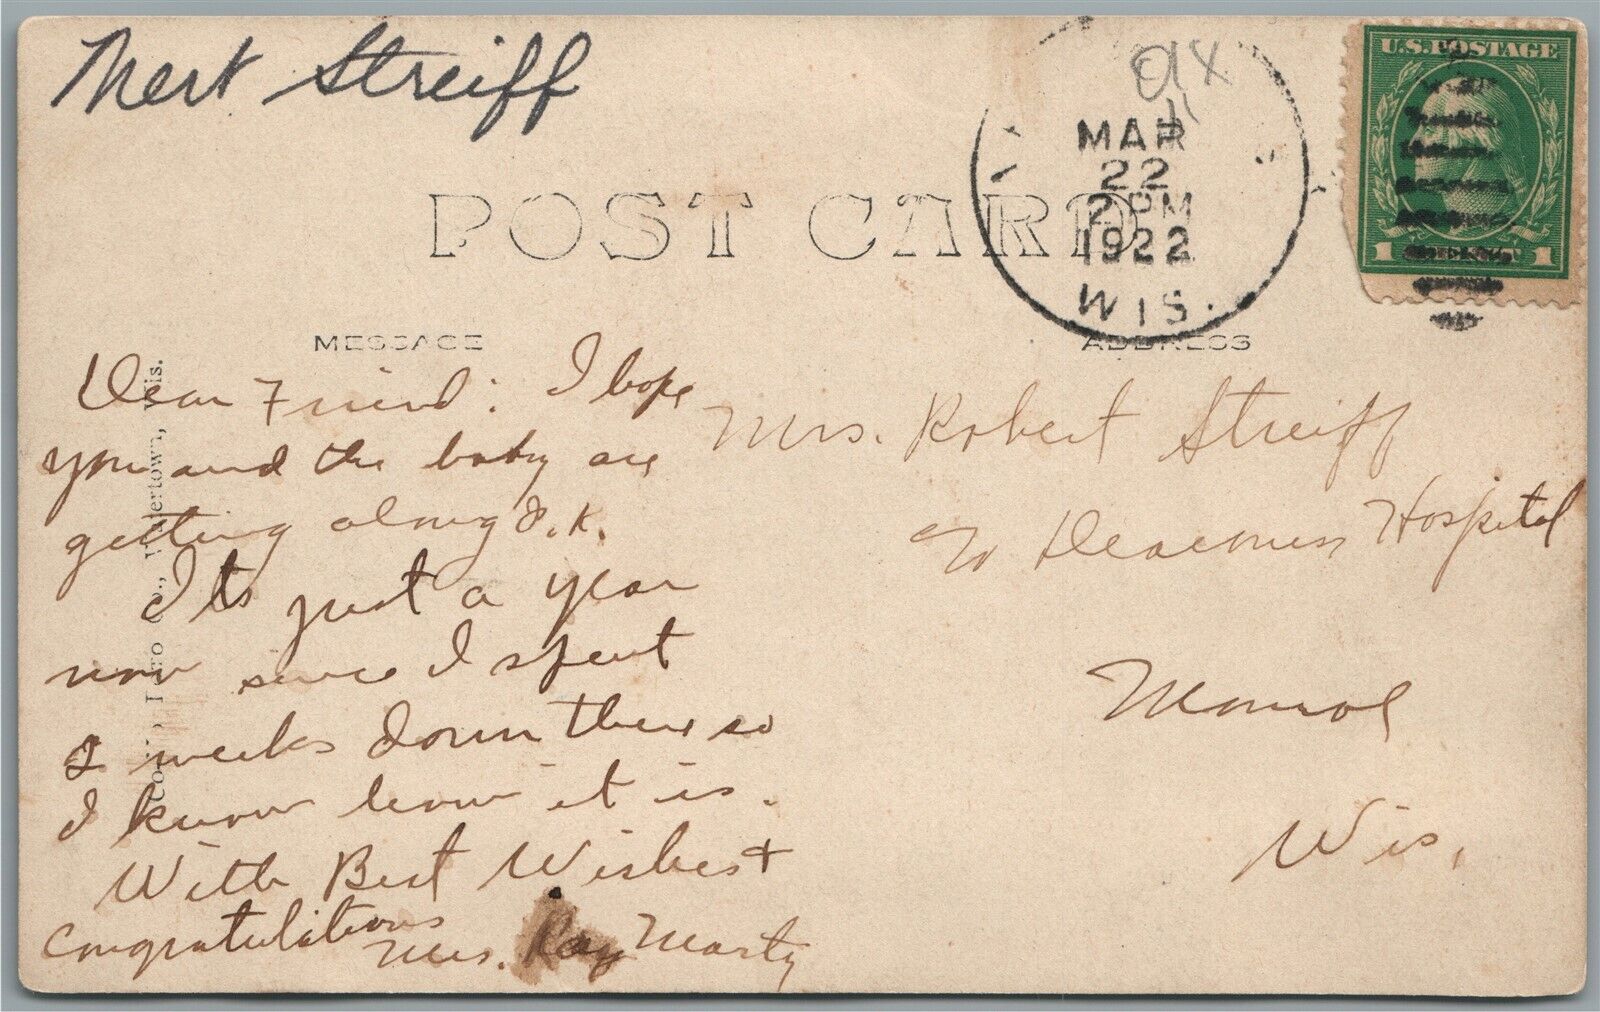 Mert Streiff
MAR
22
2 PM
1922
WIS.
U.S. POSTAGE
1 1
POST CARD
MESSAGE
ADDRESS
Dear Friend: I hope
you and the baby are
getting along O.K.
Its just a year
now since I spent
2 weeks down there so
I know how it is.
With Best Wishes +
congratulations
Mrs. Ray Marty
Mrs. Robert Streiff
c/o Deaconess Hospital
Monroe
Wis.
Photo Co., Watertown, Wis.